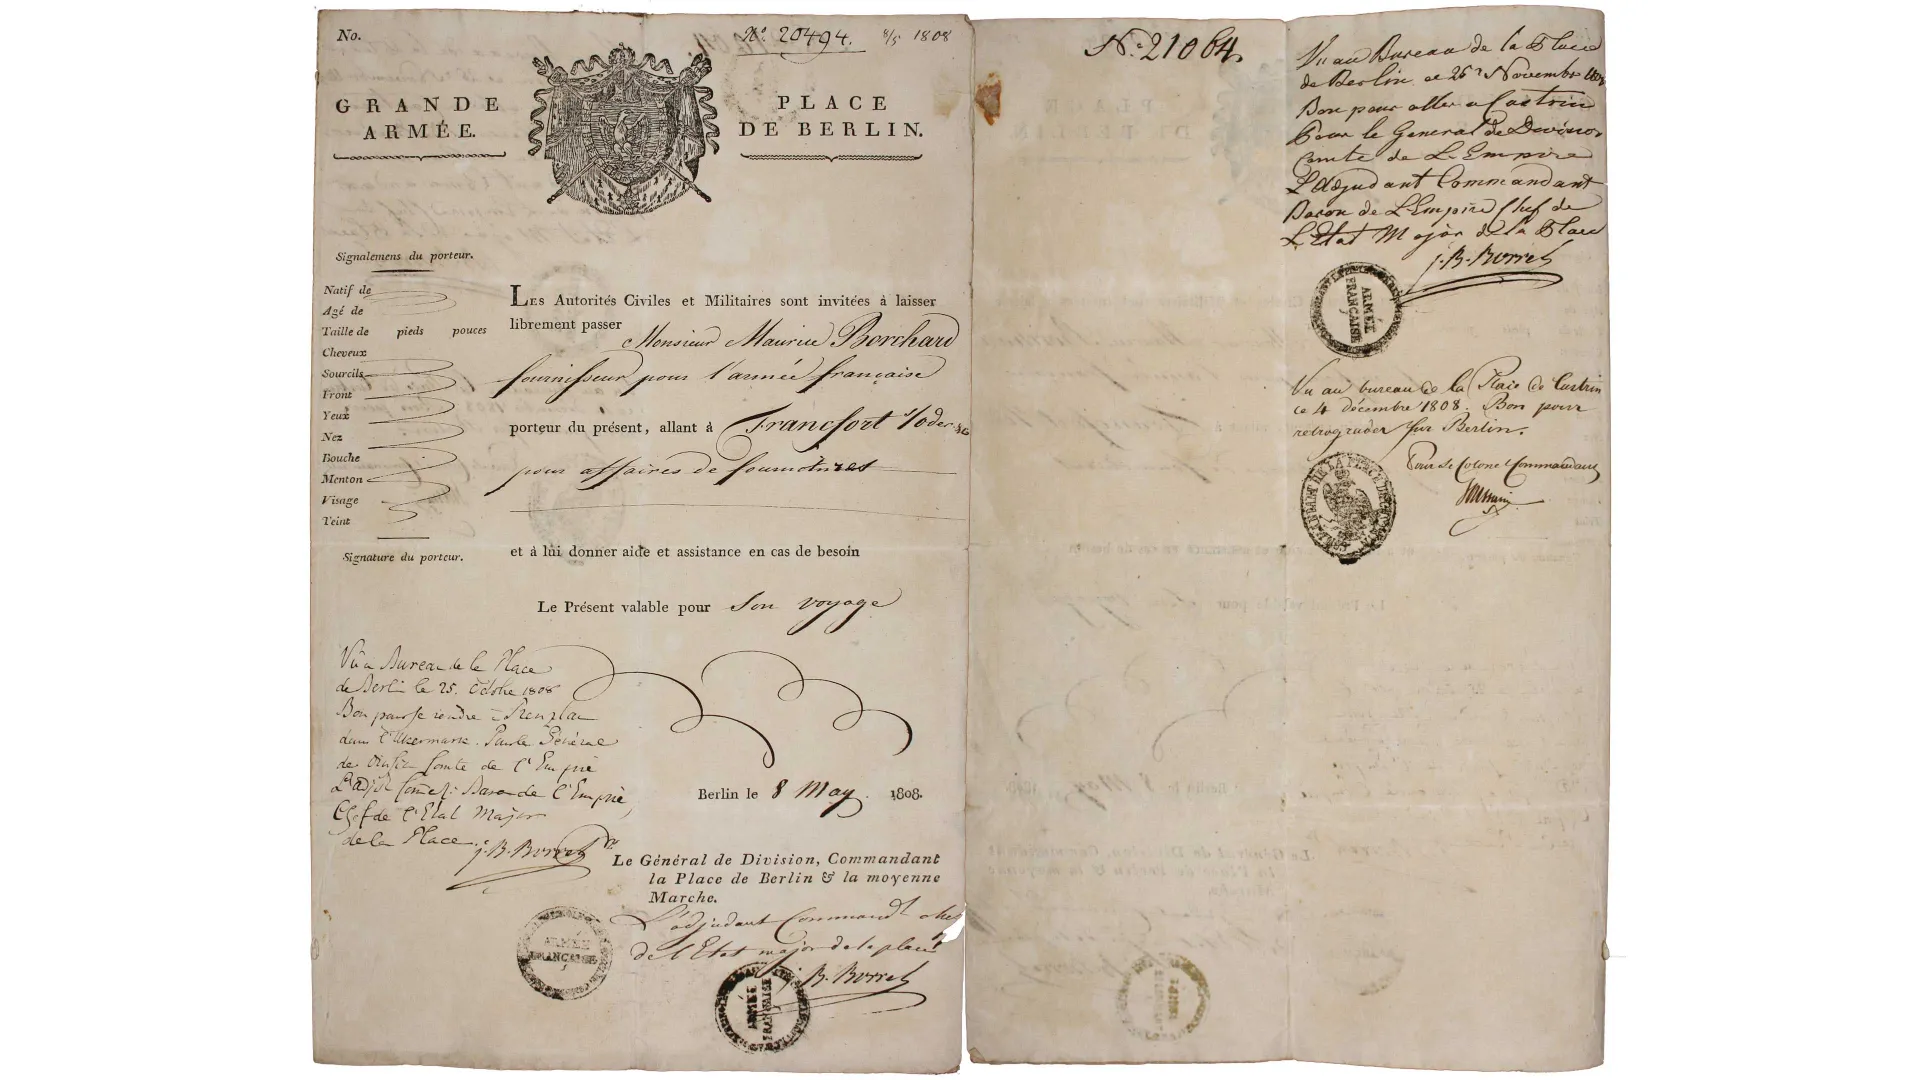 No.
Nº. 20494. 8/5 1808
GRANDE
ARMÉE.
PLACE
DE BERLIN.
Signalemens du porteur.
Natif de
Agé de
Taille de pieds pouces
Cheveux
Sourcils
Front
Yeux
Nez
Bouche
Menton
Visage
Teint
Signature du porteur.
LES Autorités Civiles et Militaires sont invitées à laisser
librement passer
Monsieur Maurice Borchard
fournisseur pour l'armée française
porteur du présent, allant à Francfort s/oder
pour affaires de fournitures
et à lui donner aide et assistance en cas de besoin
Le Présent valable pour son voyage
Vû a Bureau de la Place
de Berlin le 25. Octobre 1808
Bon pour se rendre à Prenzlau
dans l'Ukermark. Par le Général
de Comte de l'Empire
L'adjt. Comt.: Baron de l'Empire,
Chef de l'Etat Major
de la Place.
J. B. Borrel
Berlin le 8 May. 1808.
Le Général de Division, Commandant
la Place de Berlin & la moyenne
Marche.
L'adjudant Commandt chef
de l'Etat major de la place
J. B. Borrel
ARMÉE
FRANÇAISE
ARMÉE
FRANÇAISE
Nº. 21064.
Vu au Bureau de la Place
de Berlin ce 26 Novembre 1808
Bon pour aller a Custrin
Pour le General de Division
Comte de L'Empire
L'adjudant Commandant
Baron de L'Empire Chef de
L'Etat Major de la Place
J. B. Borrel
ARMÉE
FRANÇAISE
Vu au bureau de la Place de Custrin
ce 4 décembre 1808. Bon pour
retrograder sur Berlin.
Pour le Colonel Commandant